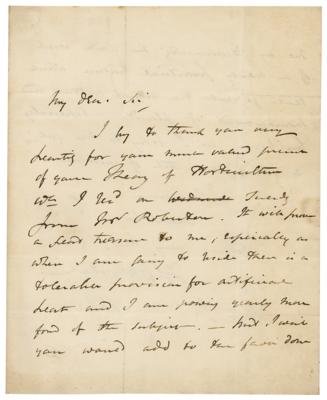 My dear Sir,
I beg to thank you very
heartily for your much valued present
of your Theory of Horticulture
wch I rec'd on Tuesday
from Mr Robertson. It will prove
a great treasure to me, especially as
where I am going to reside there is a
tolerable provision for artificial
heat and I am growing yearly more
fond of the subject. — And I wish
you would add to the favor done